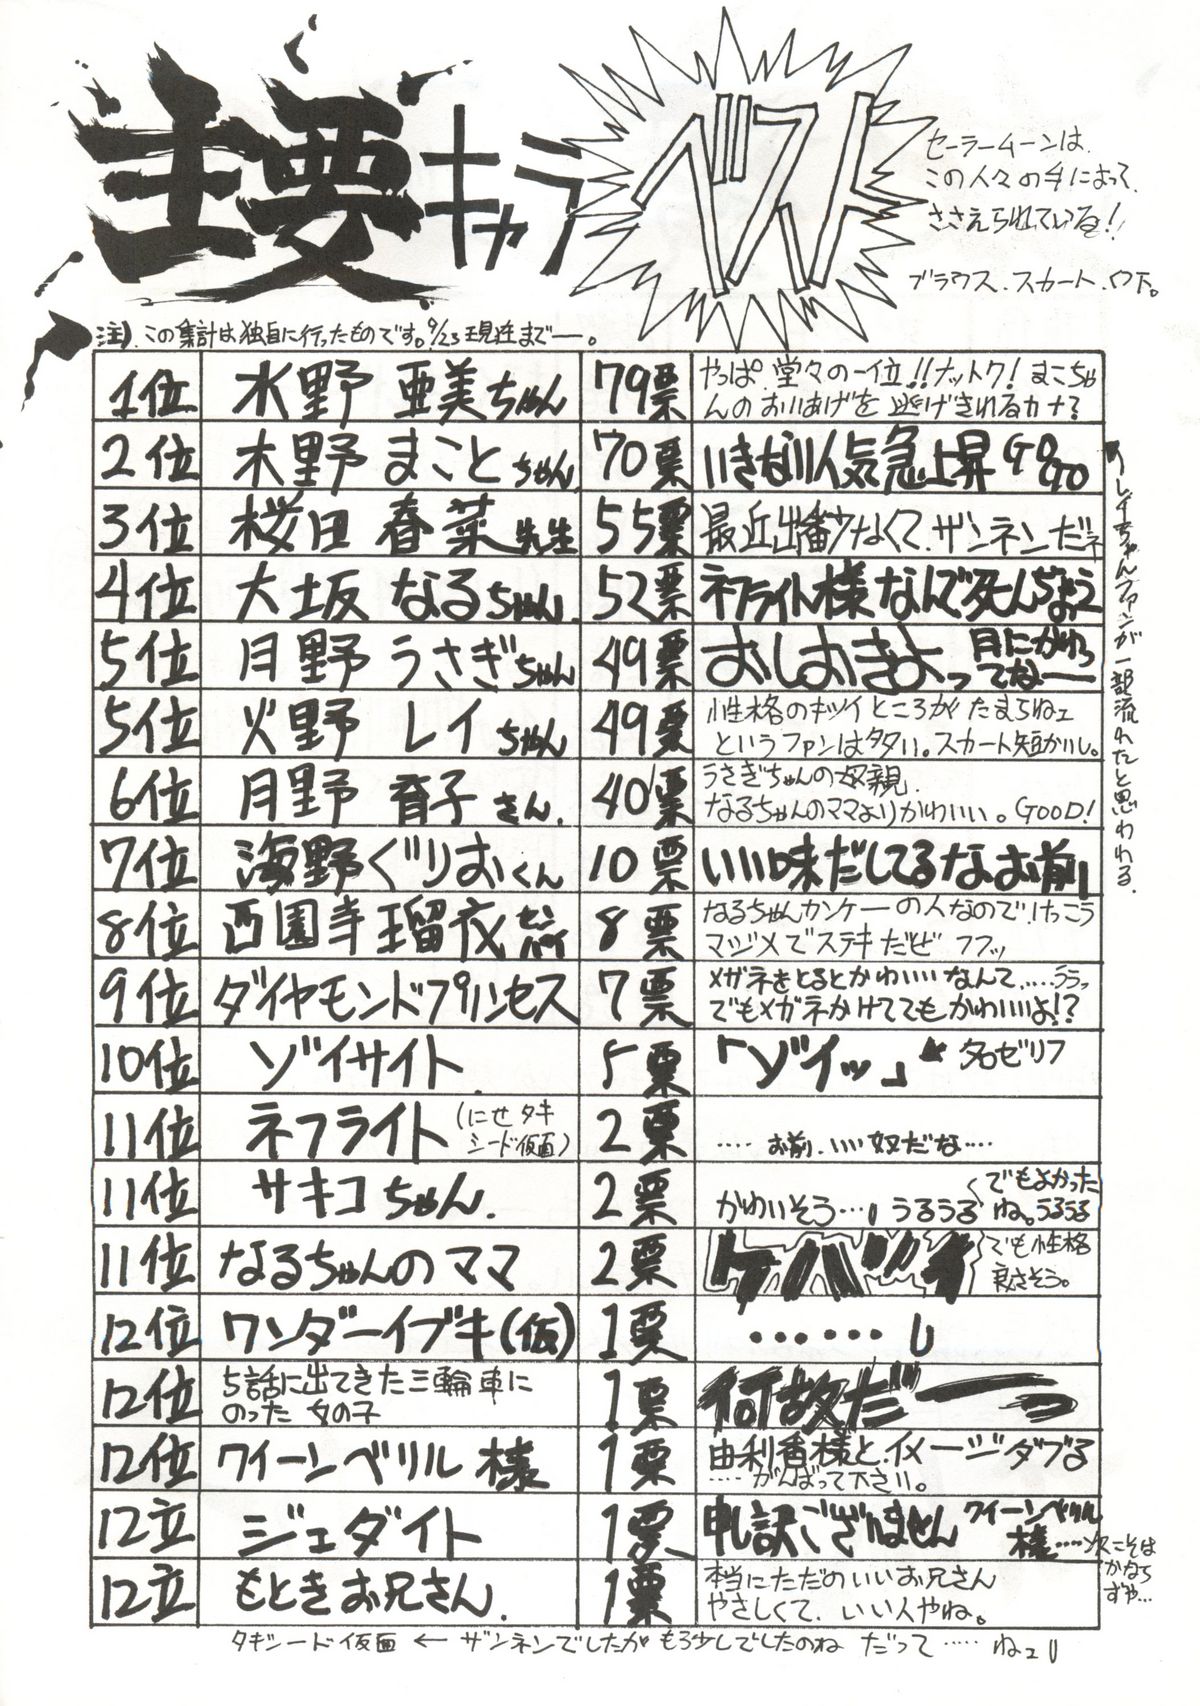 主要キャラ
ベスト
セーラームーンは、
この人々の手によって、
ささえられている!
ブラウス、スカート、
注).この集計は独自に行ったものです。9/23現在まで—。
1位 水野 亜美ちゃん 79票 やっぱ、堂々の一位!!ナットク! まこちゃ
んのおいあげを 逃げきれるカナ?
2位 木野 まことちゃん 70票 いきない人気急上昇 GO GO
3位 桜田 春菜先生 55票 最近出番少なくて、ザンネンだネ
4位 大坂 なるちゃん 52票 ネフライト様なんで死んぢゃうの
5位 月野 うさぎちゃん 49票 おしおきよっ 月にかわっ
てな——
5位 火野 レイちゃん 49票 性格のキツイところがたまらねェ
というファンは多い。スカート短かいし。
6位 月野 育子さん 40票 うさぎちゃんの母親、
なるちゃんのママよりかわいい。GOOD!
7位 海野ぐりおくん 10票 いい味だしてるなお前
8位 西園寺瑠衣センパイ 8票 なるちゃんカンケーの人なので、けっこう
マジメでステキだど フフッ
9位 ダイヤモンドプリンセス 7票 メガネをとるとかわいいなんて……ううっ
でもメガネかけててもかわいいよ!?
10位 ゾイサイト 5票 「ゾイッ」 名ゼリフ
11位 ネフライト (にせタキ
シード仮面) 2票 ….お前、いい奴だな….
11位 サキコちゃん. 2票 かわいそう… うるうる でもよかった
ね。うるうる
11位 なるちゃんのママ 2票 ケバツイ でも性格
良さそう。
12位 ワンダーイブキ(仮) 1票 ・・・・・・
12位 5話に出てきた三輪車に
のった 女の子 1票 何故だーっ
12位 クイーンベリル 様 1票 由利香様と、イメージダブる
….がんばって下さい。
12立 ジェダイト 1票 申し訳ございません クイーンベリル
様….次こそは
かならず
や…
12立 もときお兄さん. 1票 本当にただのいいお兄さん
やさしくて、いい人やね。
レイちゃんファンが一部流れたと思われる.
タキシード仮面 ← ザンネンでしたが もう少しでしたのね だって….. ねェ